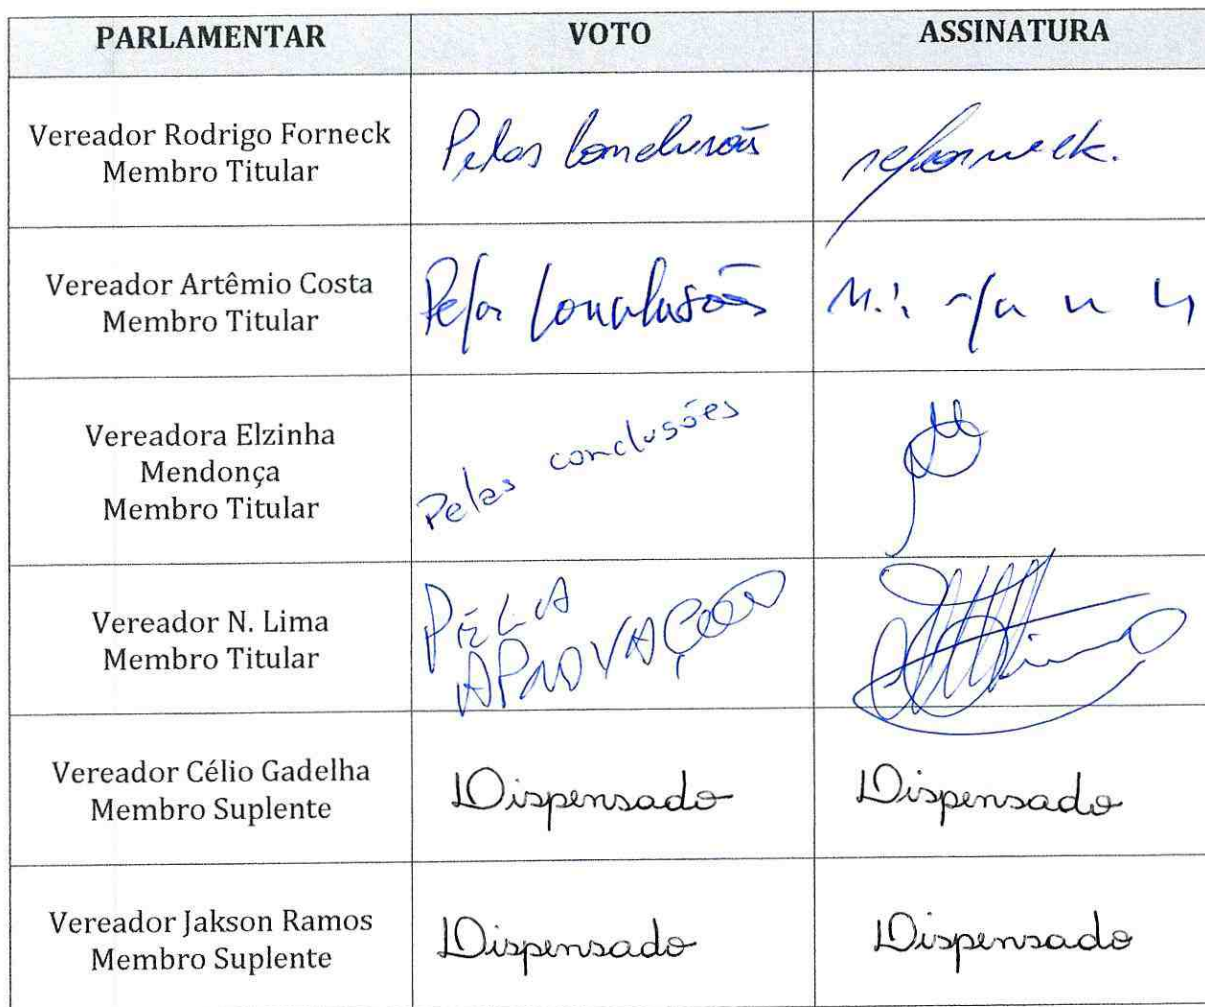 PARLAMENTAR VOTO ASSINATURA
Vereador Rodrigo Forneck
Membro Titular
Pelas Conclusões
rsforneck.
Vereador Artêmio Costa
Membro Titular
Pelas Conclusões
Vereadora Elzinha
Mendonça
Membro Titular
Pelas conclusões
Vereador N. Lima
Membro Titular
PELA
APROVAÇÃO
Vereador Célio Gadelha
Membro Suplente
Dispensado
Dispensado
Vereador Jakson Ramos
Membro Suplente
Dispensado
Dispensado